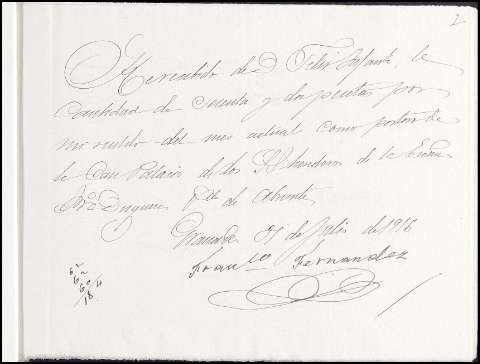 2
He recibido de D. Felix Infante, la
cantidad de cuenta y dos pesetas por
mi sueldo del mes actual como portero de
la Casa Palacio de los
Sra Duquesa de Abrantes.
Granada 31 de Julio de 1916
Franco Fernandez